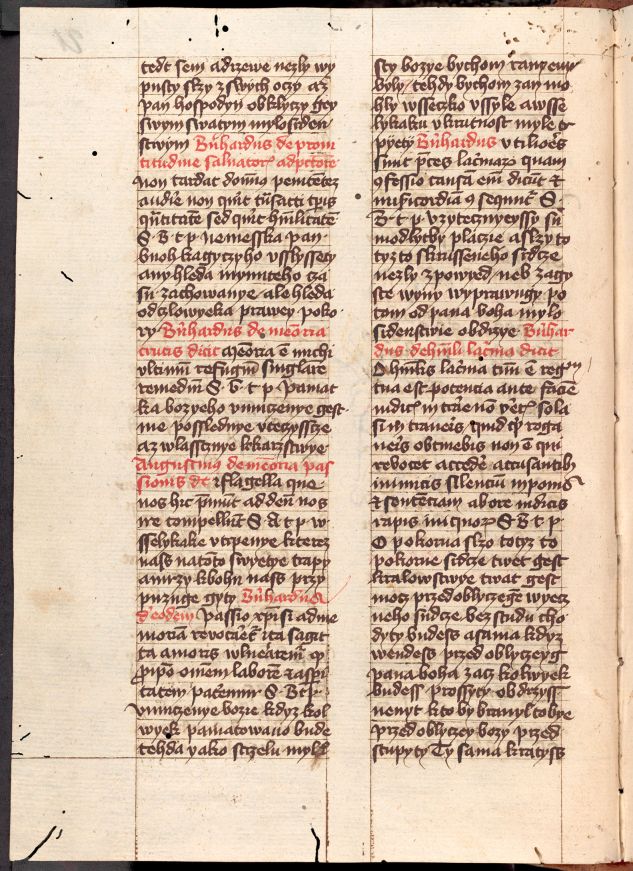 tedt sem adrzewe nezly wy
pusty skrz zswych oczy az
pan hospodyn obklyczy gey
swym swatym mylosiden
stwym Bn̄hardus de prom
titudine saluatorꝫ
non tardat domn̄s penitētez
audie non quit
qn̄titatē sed quit hūilitatē
S. B. t. p. Nemesska pan
buoh kagyczyho vsslyssety
any hleda mynuteho cza
su zachowanye ale hleda
odczlowyeka prawey poko
ry Bn̄hardus de meōria
crucis dicit meōria ē michi
vltimū refugiū singlare
remediū S. B. t. p. pamat
ka bozyeho vmuczenye gest
me posslednye vteczysstze
az wlasstnye lekarzstwye
Augustinus de meōria pas
sionis dt flagella que
nos hic pmūt ad deū nos
ire compellūt S. A. t. p. w
sselykake vtrpenye kterez
nass natoto swyetye trapy
anuzy kbohu nass przy
puzuge gyty Bn̄hardus
de eodem passio xpi si ad me
moriā reuocāt ita sagit
ta amoris wlneātem
pipō omēm laborē
tatem patēmur S. B. t. p.
vmuczenye bozie kdyz kol
wyek pamatowano bude
tehda yako strzelu mylo
sty bozye bychom ranyenu
byly tehdy bychom zan mo
hly wssetzko vssyle awsse
lykaku vkrutnost myle tr
pyety Bn̄hardus vtiliōes
sunt pces lacimaꝝ quam
ꝯfessio causam em̄ dicūt et
misicordia ꝯsequntꝰ S.
B. t. p. vzytecznyeyssy su
modlytby placzie aslzy to
tyz to skrusseneho srdcze
nezly zpowyed neb zagy
ste wyny wyprawugy po
tom od pana boha mylo
sidenstwie obdrzye Bn̄har
dus de hūili lacima dicit
O humiis lacima tuū ē regnū
tua est potencia ante faciē
iudicꝭ intrare nō sola
si intraueis quid qꝫ roga
ueis obtinebis non ē qui
reuocet accedē accusantibꝫ
inimicis silenciū inponis
et sentenciam ab ore iudicis
rapis iniquoꝝ S. B. t. p.
O pokorna slzo totyz to
pokorne sidcze twet gest
kralowstwye twat gest
motz przed oblyczegē wyecz
neho sudcze bez studu cho
dyty budess asama kdyz
wendess przed oblyczeyg
pana boha zacz kolwyek
budess prossyty obdrzyss
nenyt kto by branyl tobye
przed oblyczey bozy przed
stupyty Ty sama kratyss